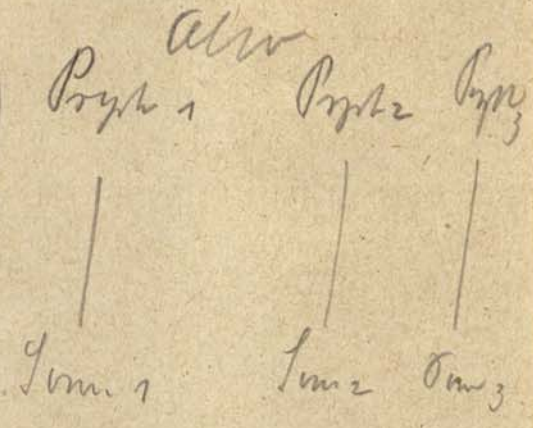 Also
Psych 1 Psych 2 Psych 3
Som. 1 Som 2 Som 3